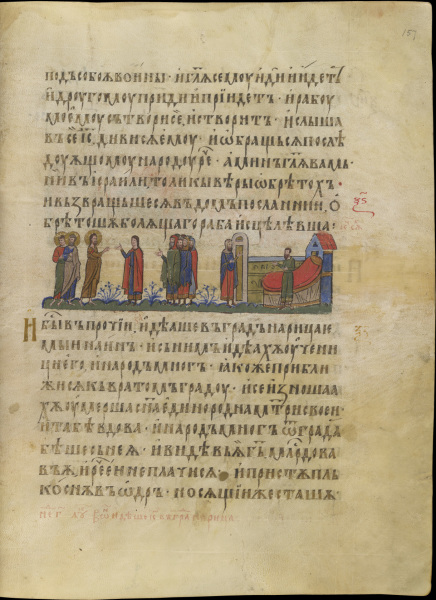 подъ собоѫ воины · и гл҃ѧ семоу иди и идетъ
и дроугомоу приди и прїидетъ · и рабоу
моемоу сътвори се, и створитъ · и слыша
въ се і҃с, дивисѧ емоу · и ѡбращьсѧ по слѣ
доуѫщомоу народоу р҃е · аминь гл҃ѧ вамь ·
ни въ ізраили толикы вѣры ѡбрѣтохъ ·
и възвращьшесѧ въ домъ посланнии, о
брѣтошѧ болѧщаго раба исцѣлѣвша ·
И бы въ прочїи, идѣаше въ градъ нарицае
мыи наинъ · и съ нимъ идѣахѫ оучени
ци его, и народъ многъ · ꙗкоже прибли
жисѧ къ вратомъ градоу · и се изношаа
хѫ оумерша сн҃а единородна мт҃ри своеи ·
и та бѣ вдова · и народъ многъ ѿ града
бѣше съ неѧ · и видѣвъ ѧ г҃ь млр҃дова
въ ѫ, и реч҃ еи не плачисѧ · и пристѫпль
коснѫ въ ѡдръ · носѧщїи же сташѧ ·